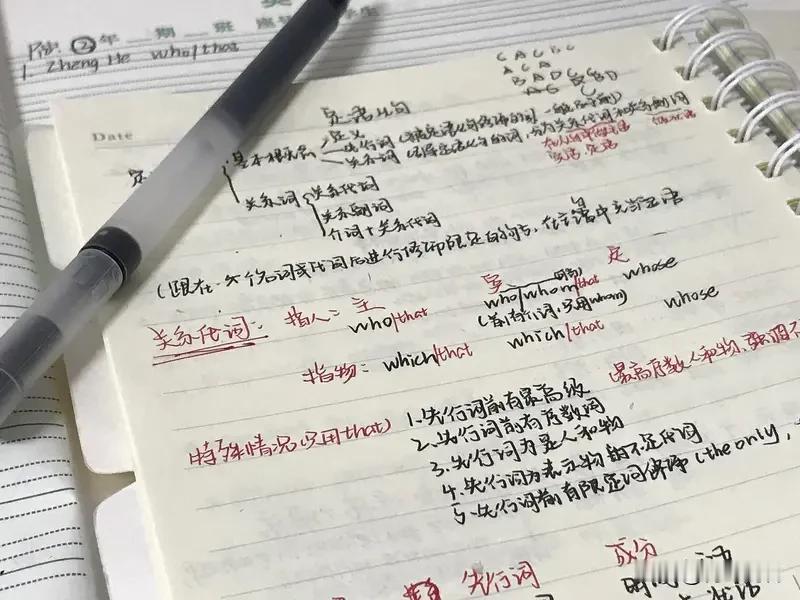 年 期 班
1. Zheng He who/that
CACBC
ACA
BADC
Date
定语从句
定义
基本概念
先行词
关系词
关系词
关系代词
关系副词
介词+关系代词
(跟在一个名词或代词后进行修饰限定的句子,在主句中充当定语
关系代词: 指人: 主 宾 定
who/that who/whom/that whose
(前有介词,只用whom)
指物: which/that which/that whose
特殊情况(只用that) 1.先行词前有最高级
2.先行词前有序数词
3.先行词为是人和物
4.先行词为表示物的不定代词
5.先行词前有限定词修饰(the only,
(最高序数人和物,强调不
先行词 成分
时间